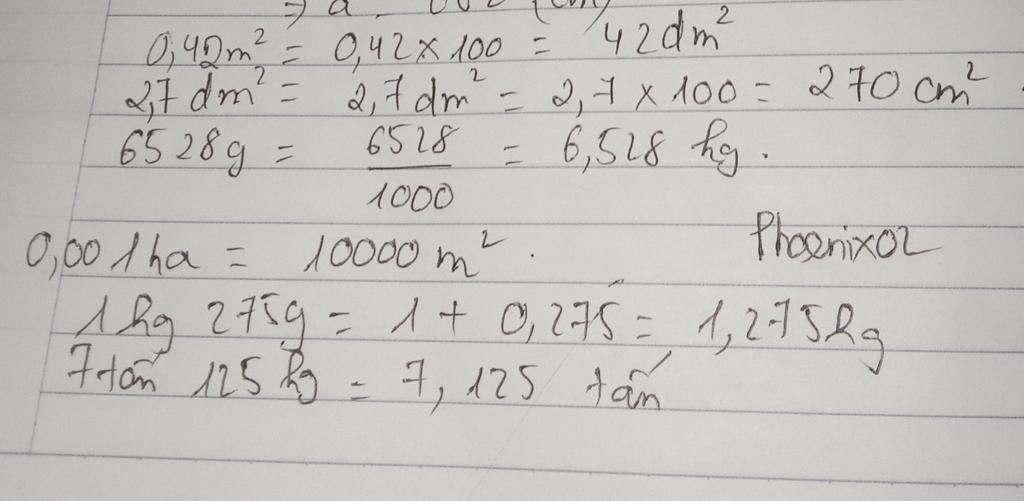 0,42m² = 0,42 x 100 = 42dm²
2,7dm² = 2,7dm² = 2,7 x 100 = 270 cm²
6528g = 6528/1000 = 6,528 kg.
0,001ha = 10000m².
Phoenix02
1kg 275g = 1 + 0,275 = 1,275kg
7tấn 125kg = 7,125 tấn